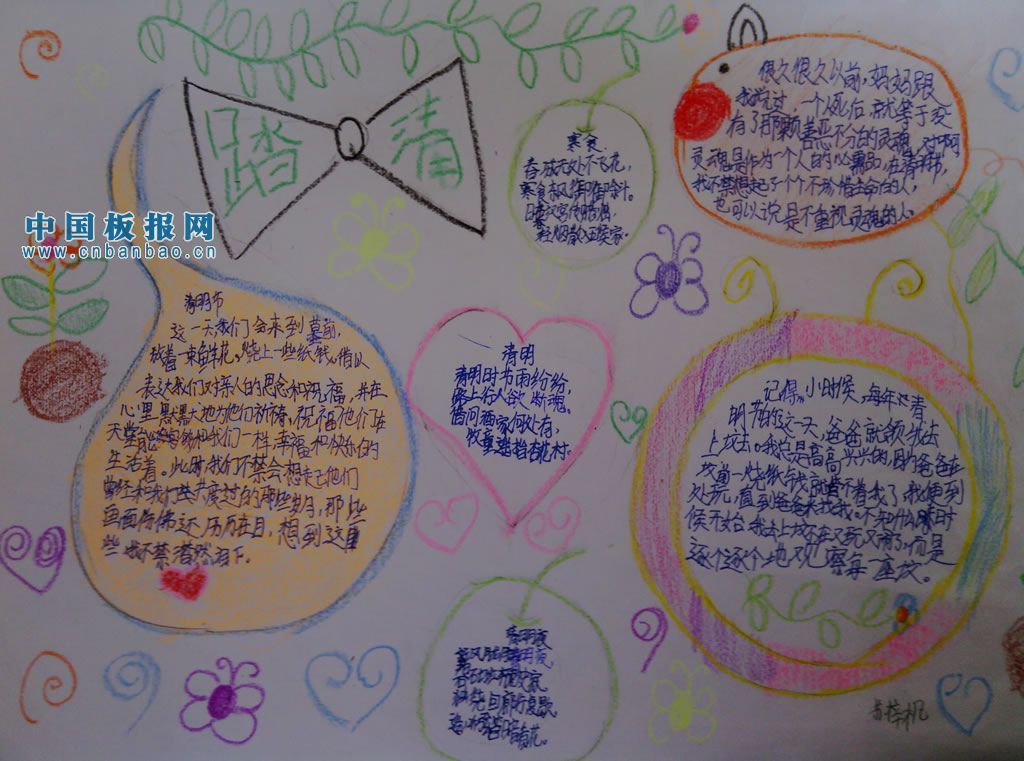 踏清
中国板报网
www.cnbanbao.cn
寒食
春城无处不飞花,
寒食东风御柳斜。
日暮汉宫传蜡烛,
轻烟散入五侯家。
很久很久以前,妈妈跟
我说过,一个人死后,就等于交
有了那颗善恶不分的灵魂,对啊
灵魂是作为一个人的必需品,在清明节,
我不禁想起了个个不珍惜生命的人,
也可以说是不重视灵魂的人。
清明节
这一天,我们会来到墓前,
放着一束鲜花。烧上一些纸钱,借以
表达我们对亲人的思念和祝福,并在
心里默默地为他们祈祷,祝福他们在
天堂能够和我们一样幸福和快乐的
生活着。此时我们不禁会想起他们
曾经和我们共度过的那些岁月,那些
画面仿佛还历历在目,想到这里
些我不禁潸然泪下。
清明
清明时节雨纷纷,
路上行人欲断魂。
借问酒家何处有,
牧童遥指杏花村。
记得小时候,每年清
明节的这一天,爸爸就领我去
上坟去。我总是高高兴兴的,因为爸爸在
坟前一烧纸钱,就管不着我了,我便到
处玩,直到爸爸来找我。不知什么时
候开始,我去上坟不再又玩又闹了,而是
逐个逐个地观察每一座坟。
清明夜
好风胧月清明夜,